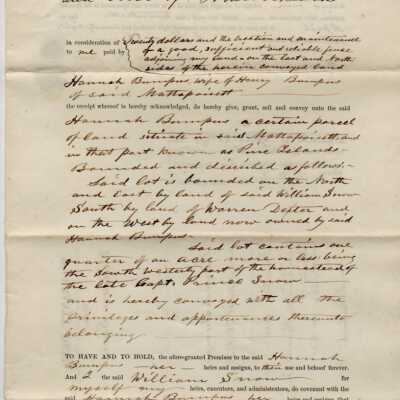 in consideration of Seventy dollars and the erection and maintainence
to me paid by of a good, sufficient and reliable fence
adjoining my lands on the East and North
sides of the herein conveyed land
Hannah Bumpus, wife of Henry Bumpus
of said Mattapoisett
the receipt whereof is hereby acknowledged, do hereby give, grant, sell and convey unto the said
Hannah Bumpus a certain parcel
of land situate in said Mattapoisett and
in that part known as Pine Islands.
Bounded and described as follows:-
Said lot is bounded on the North
and East by land of said William Snow
South by land of Warren Dexter and
on the West by land now owned by said
Hannah Bumpus.
Said lot contains one
quarter of an acre more or less being
the South Westerly part of the homestead of
the late Capt. Prince Snow
and is hereby conveyed with all the
privileges and appurtenances thereunto
belonging
TO HAVE AND TO HOLD, the aforegranted Premises to the said Hannah
Bumpus her heirs and assigns, to their use and behoof forever.
And I the said William Snow for
myself my heirs, executors, and administrators, do covenant with the
said Hannah Bumpus her heirs and assigns that